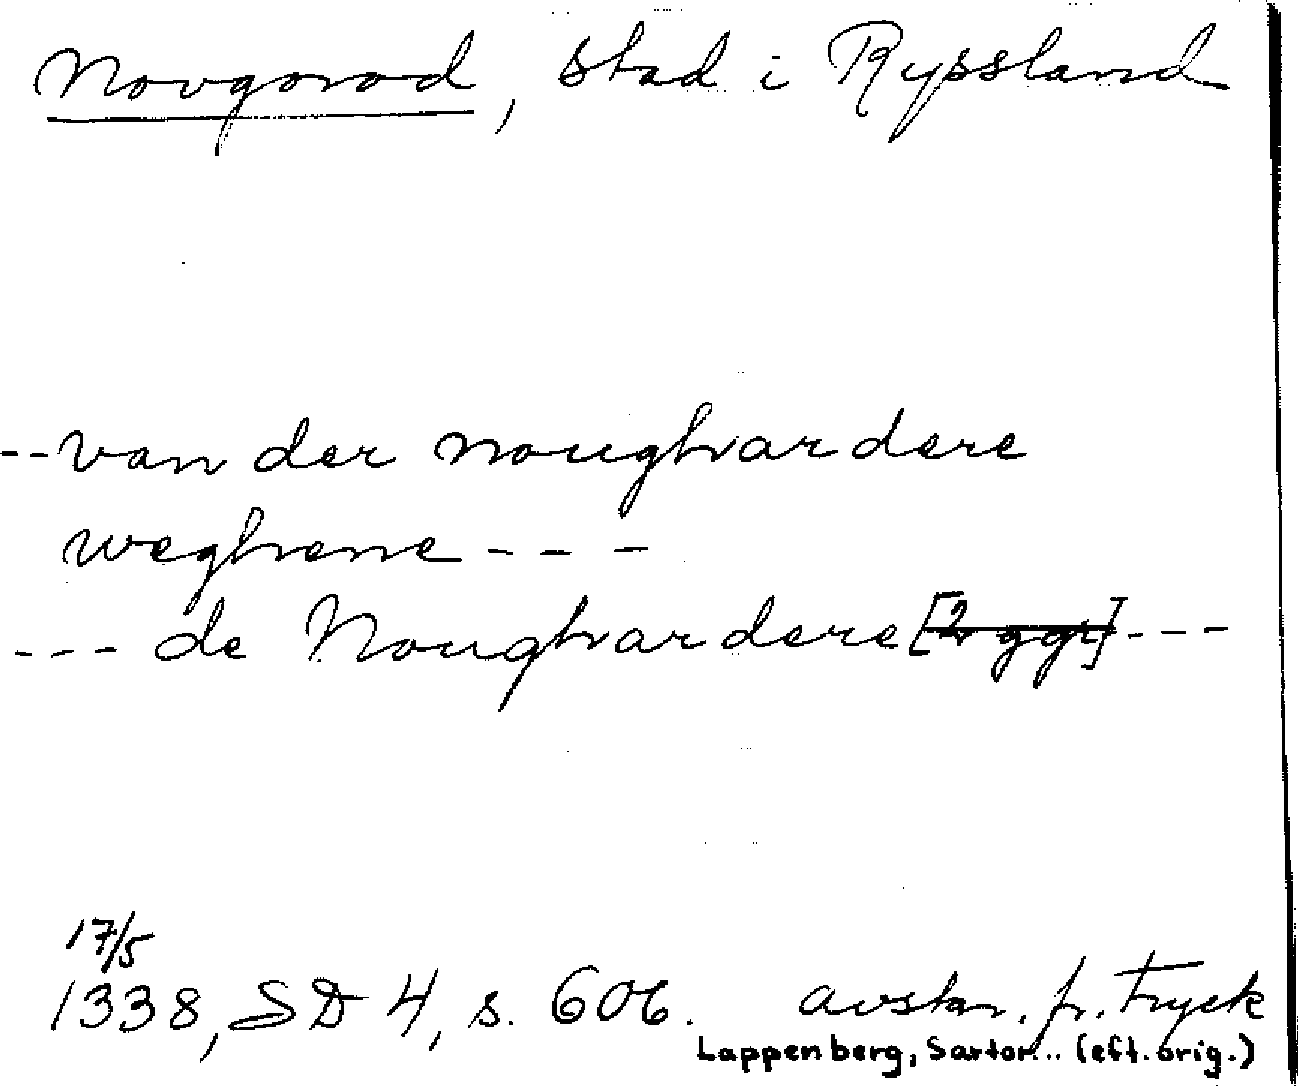 Novgorod, stad i Ryssland
--van der noughardere
weghene - - -
--- de Noughardere [2 ggr] ---
17/5
1338, SD 4, s. 606. avskr. fr. tryck
Lappenberg, Sartor... (eft. orig.)